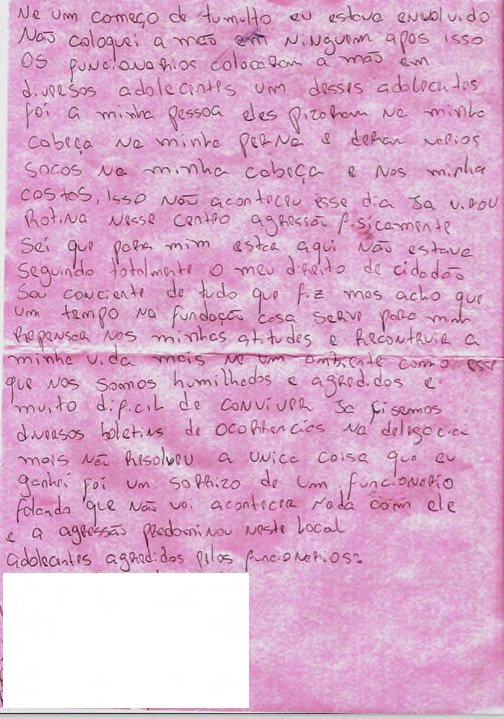 Ne um começo de tumulto eu estava envolvido
Não coloquei a mão em ninguem apos isso
OS funcionarios colocaram a mão em
diversos adolecentes um desses adolecentes
foi a minha pessoa eles pizaram na minha
cabeça na minha perna e deram varios
socos na minha cabeça e nos minha
costas, isso não aconteceu esse dia Ja virou
Rotina nesse centro agressão fisicamente
sei que para mim estar aqui não estava
seguindo totalmente o meu direito de cidadão
Sou conciente de tudo que fiz mas acho que
um tempo na fundação casa serve para mim
Repensar nas minhas atitudes e Recontruir a
minha vida mais ne um ambiente como esse
que nos somos humilhados e agredidos e
muito dificil de conviver Ja fisemos
diversos boletins de ocorrencias na delegacia
mais não Resolveu a unica coisa que eu
ganhei foi um sorrizo de um funcionario
falando que não vai acontecer nada com ele
e a agressão predominou neste local
adolecentes agredidos pelos funcionarios.